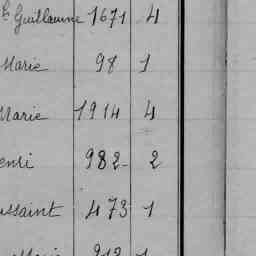 Guillaume 1671 4
Marie 98 1
Marie 1914 4
enri 982 2
ussaint 473 1